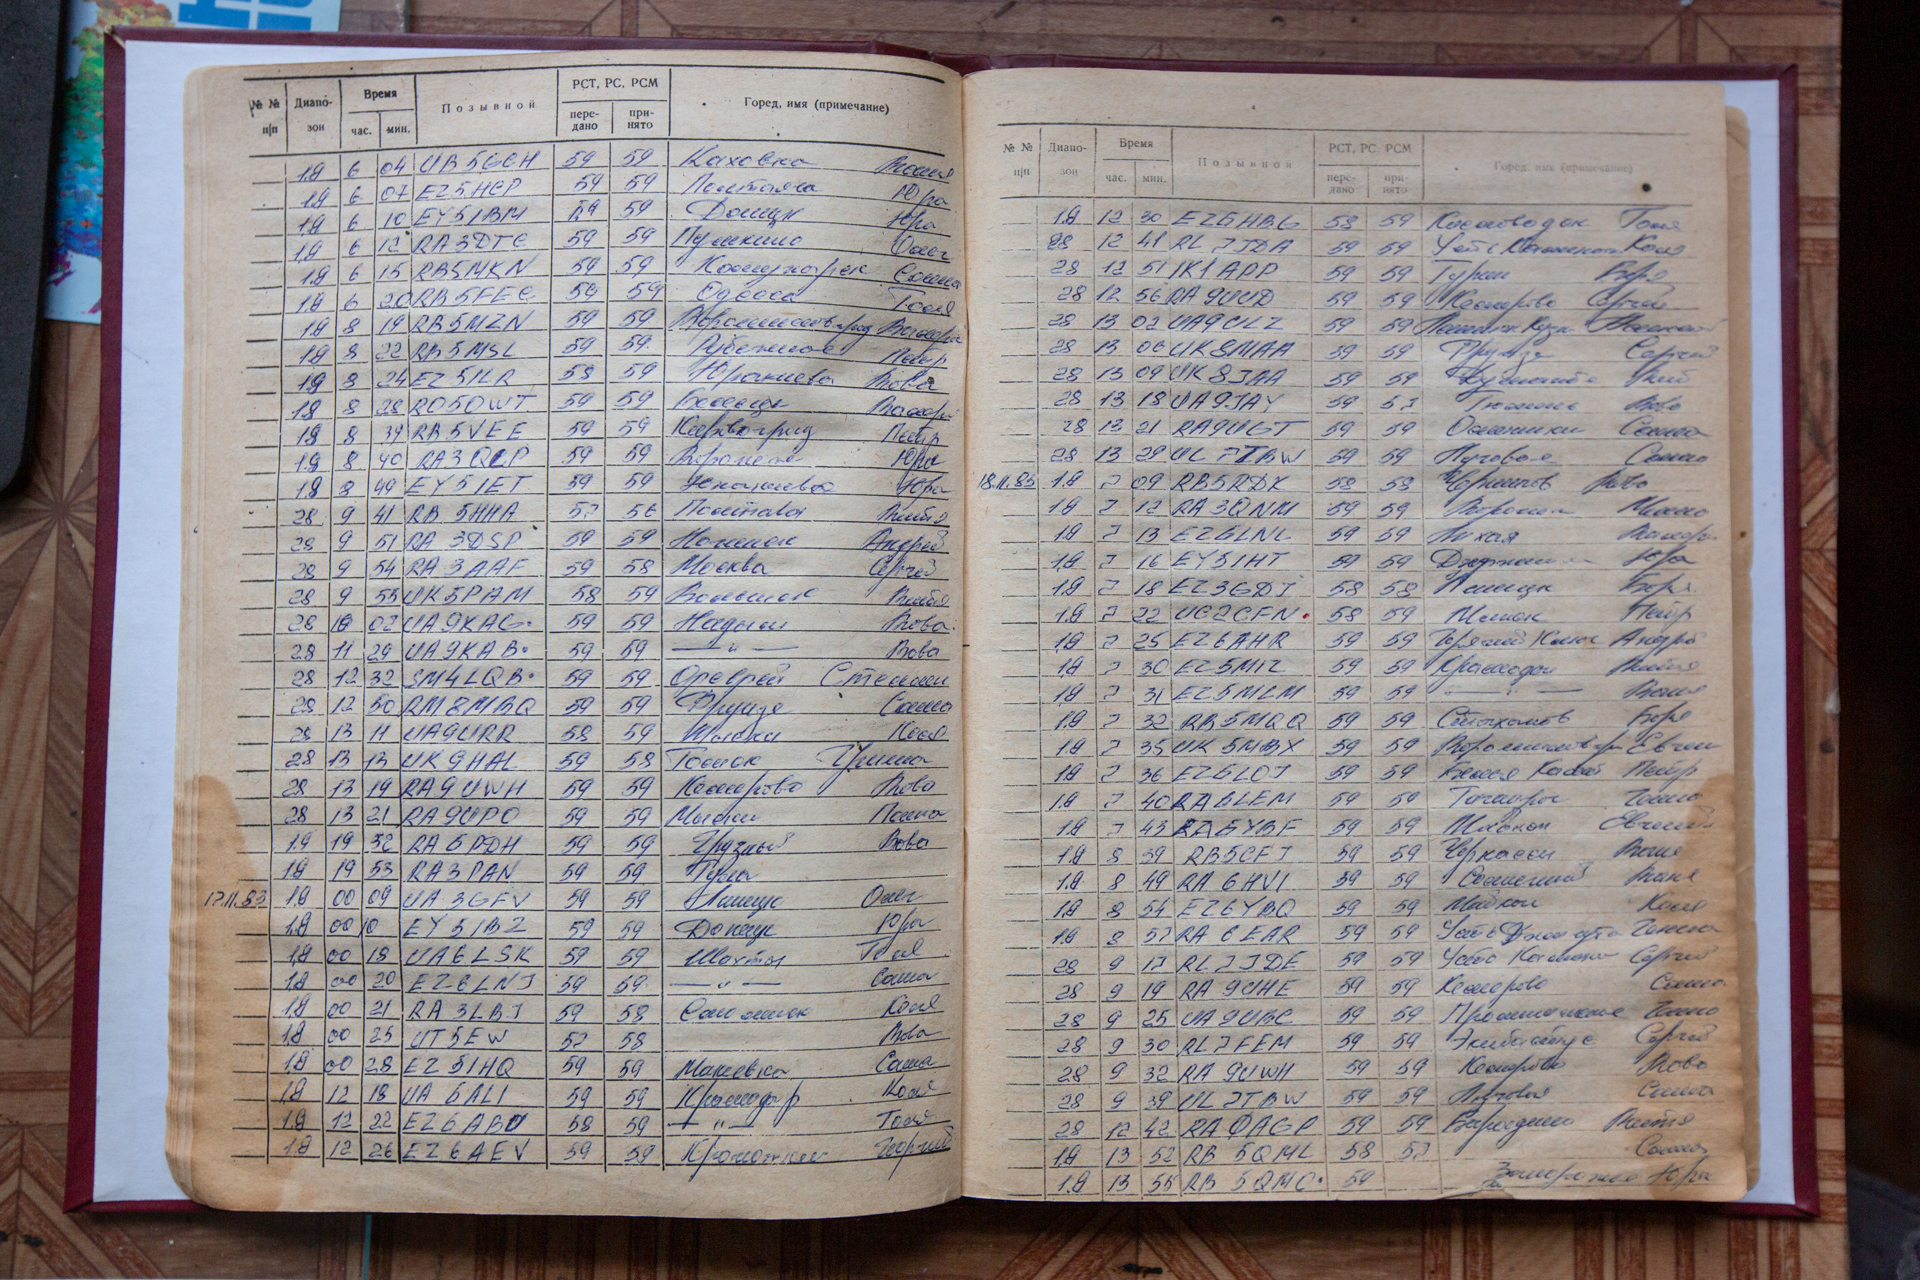 № № п/п Диапозон Время час. мин. Позывной РСТ, РС, РСМ передано принято Город, имя (примечание)
1,8 6 04 UB5GCH 59 59 Каховка
1,8 6 07 EZ5HCP 59 59 Юра
1,8 6 10 EY5IBM 59 59 Донецк Юра
1,8 6 12 RA3DTC 59 59 Пушкино Олег
1,8 6 15 RB5MKN 59 59 Саша
1,8 6 20 RB5FEC 59 59 Одесса Толя
1,8 8 19 RB5MZN 59 59 Ворошиловград
1,8 8 22 RB5MSL 59 59 Рубежное Петр
1,8 8 24 EZ5ILR 58 59 Вова
1,8 8 28 RO5OWT 59 59 Бельцы
1,8 8 39 RB5VEE 59 59 Кировоград Петр
1,8 8 40 RA3QCP 59 59 Воронеж Юра
1,8 8 49 EY5IET 59 59 Юра
28 9 41 RB5HHA 57 56 Полтава Витя
28 9 51 RA3DSP 59 59 Андрей
28 9 54 RA3AAF 59 58 Москва Сергей
28 9 55 UK5PAM 58 59 Витя
28 10 02 UA9KAG 59 59 Надым Вова
28 11 29 UA9KAB 59 59 — " — Вова
28 12 32 SM4LQB 59 59 Стеллин
28 12 50 RM8MBQ 59 59 Фрунзе Саша
28 13 11 UA9URR 58 59 Коля
28 13 13 UK9HAL 59 58 Томск
28 13 19 RA9UWH 59 59 Кемерово Вова
28 13 21 RA9UPO 59 59 Мыски
1,8 19 32 RA6PDH 59 59 Грозный Вова
1,8 19 53 RA3PAN 59 59 Тула
17.11.83 1,8 00 09 UA3GFV 59 59 Липецк Олег
1,8 00 10 EY5IBZ 59 59 Донецк Юра
1,8 00 18 UA6LSK 59 59 Шахты Толя
1,8 00 20 EZ6LNJ 59 59 — " — Саша
1,8 00 21 RA3LBJ 59 58 Коля
1,8 00 25 UT5EW 57 58 Вова
1,8 00 28 EZ5IHQ 59 59 Макеевка Саша
1,8 12 18 UA6ALI 59 59 Краснодар Коля
1,8 12 22 EZ6ABU 58 59 — " — Толя
1,8 12 26 EZ6AEV 59 59 Кропоткин Георгий
№ № п/п Диапозон Время час. мин. Позывной РСТ, РС, РСМ передано принято Город, имя (примечание)
1,8 12 30 EZ6HBG 58 59 Кисловодск Толя
28 12 41 RL7JDA 59 59 Усть Каменогор Коля
28 12 51 IK1APP 59 59 Турин
28 12 56 RA9UUD 59 59 Кемерово Сергей
28 13 02 UA9ULZ 59 59
28 13 06 UK8MAA 59 59 Фрунзе Сергей
28 13 09 UK8JAA 59 59
28 13 18 UA9JAY 59 57 Вова
28 13 21 RA9UGT 59 59 Осинники Саша
28 13 29 UL7TBW 59 59 Луговая Саша
18.11.83 1,8 7 09 RB5RDK 58 58 Чернигов
1,8 7 12 RA3QNM 59 59 Воронеж Миша
1,8 7 13 EZ6LNL 59 59 Лихая
1,8 7 16 EY5IHT 59 59 Юра
1,8 7 18 EZ3GDJ 58 58 Липецк Боря
1,8 7 22 UC2CFN 58 59 Минск Петр
1,8 7 25 EZ6AHR 59 59 Горячий Ключ Андрей
1,8 7 30 EZ5MIZ 59 59 Краснодон
1,8 7 31 EZ5MLM 59 59 — " — Ваня
1,8 7 32 RB5MQQ 59 59 Стаханов Боря
1,8 7 35 UK5MBX 59 59 Ворошиловгр Евген
1,8 7 36 EZ6LOJ 59 59 Белая Калит Петр
1,8 7 40 RA6LEM 59 59 Таганрог
1,8 7 43 RA6YBF 59 59 Майкоп Евгений
1,8 8 39 RB5CFJ 59 59 Черкассы Ваня
1,8 8 49 RA6HVI 59 59
1,8 8 54 EZ6YBQ 59 59 Майкоп Коля
1,8 8 57 RA6EAR 59 59 Усть Джегута
28 9 17 RL7JDE 59 59 Усть Каменог Сергей
28 9 19 RA9UHE 59 59 Кемерово Саша
28 9 25 UA9UBC 59 59
28 9 30 RL7FEM 59 59 Экибастуз Сергей
28 9 32 RA9UWH 59 59 Кемерово Вова
28 9 39 UL7TBW 59 59 Луговая Саша
28 12 42 RAØAGP 59 59 Бородино Витя
1,8 13 52 RB5QML 58 57 Саша
1,8 13 55 RB5QMC 59 Запорожье Юра